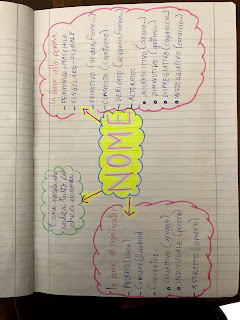 NOME
È una parola che
indica tutto ciò
che ci circonda
In base alla forma
- FEMMINILE - MASCHILE
- SINGOLARE - PLURALE
- PRIMITIVO (acqua, fiore...)
- COMPOSTO (capotreno)
- DERIVATO (acquaio, fioraio...)
- ALTERATO:
ACCRESCITIVO
DIMINUTIVO
DISPREGIATIVO
VEZZEGGIATIVO
In base al significato
- PROPRIO (Luca)
- COMUNE (bambino)
- CONCRETO:
COLLETTIVO (gregge)
INDIVIDUALE (pecora)
- ASTRATTO (amore)